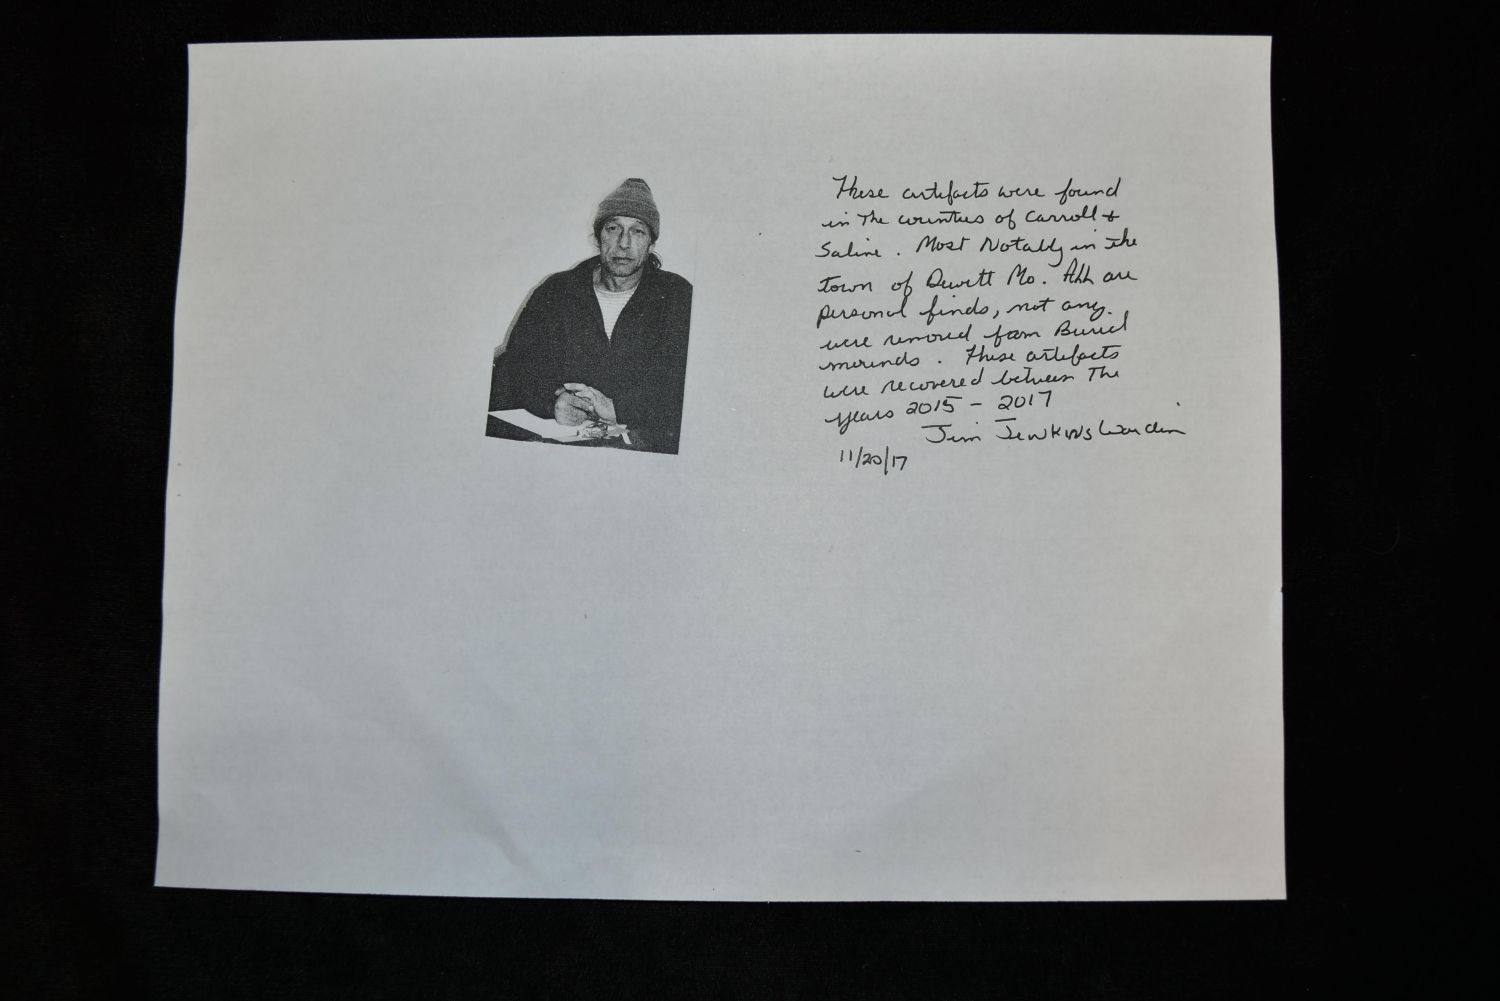 These artefacts were found
in The counties of Carroll +
Saline. Most Notably in the
town of Dewitt Mo. All are
personal finds, not any.
were removed from Buriel
mounds. These artefacts
were recovered between The
years 2015 - 2017
Jim Jenkins
11/20/17